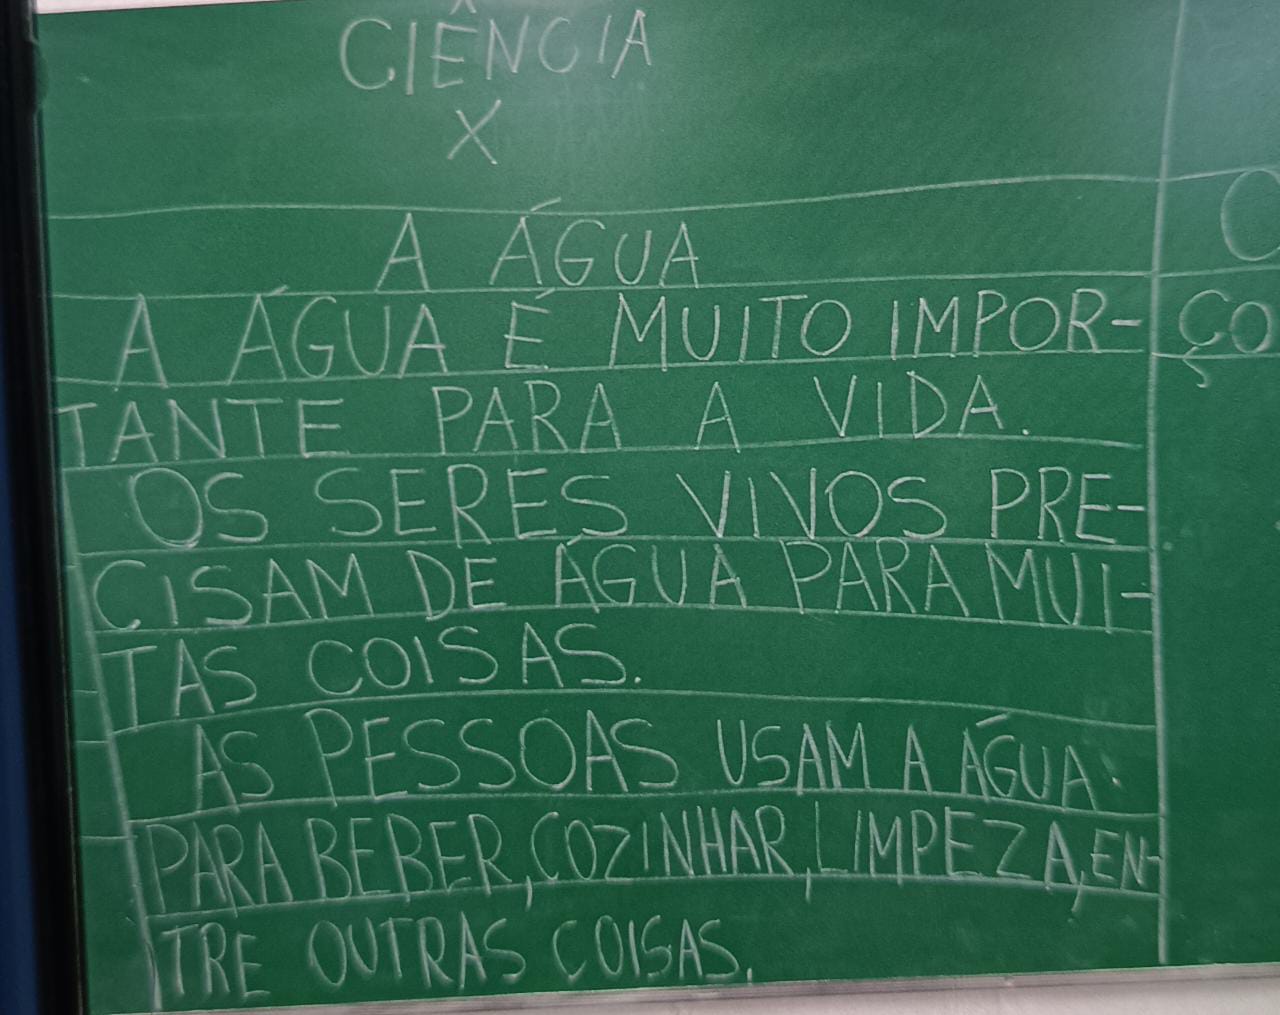 CIÊNCIA
X
A ÁGUA
A ÁGUA É MUITO IMPOR-
TANTE PARA A VIDA.
OS SERES VIVOS PRE-
CISAM DE ÁGUA PARA MUI-
TAS COISAS.
AS PESSOAS USAM A ÁGUA.
PARA BEBER, COZINHAR, LIMPEZA, EN-
TRE OUTRAS COISAS.
ÇO